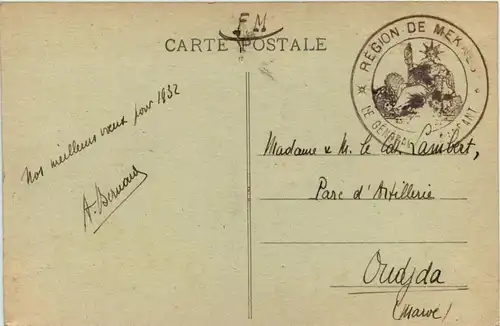 FM
CARTE POSTALE
RÉGION DE MEKNÈS
LE GÉNÉRAL COMMANDANT
Nos meilleurs vœux pour 1932
A. Bernard
Madame & M. le Lambert,
Parc d'Artillerie
Oudjda
(Maroc)